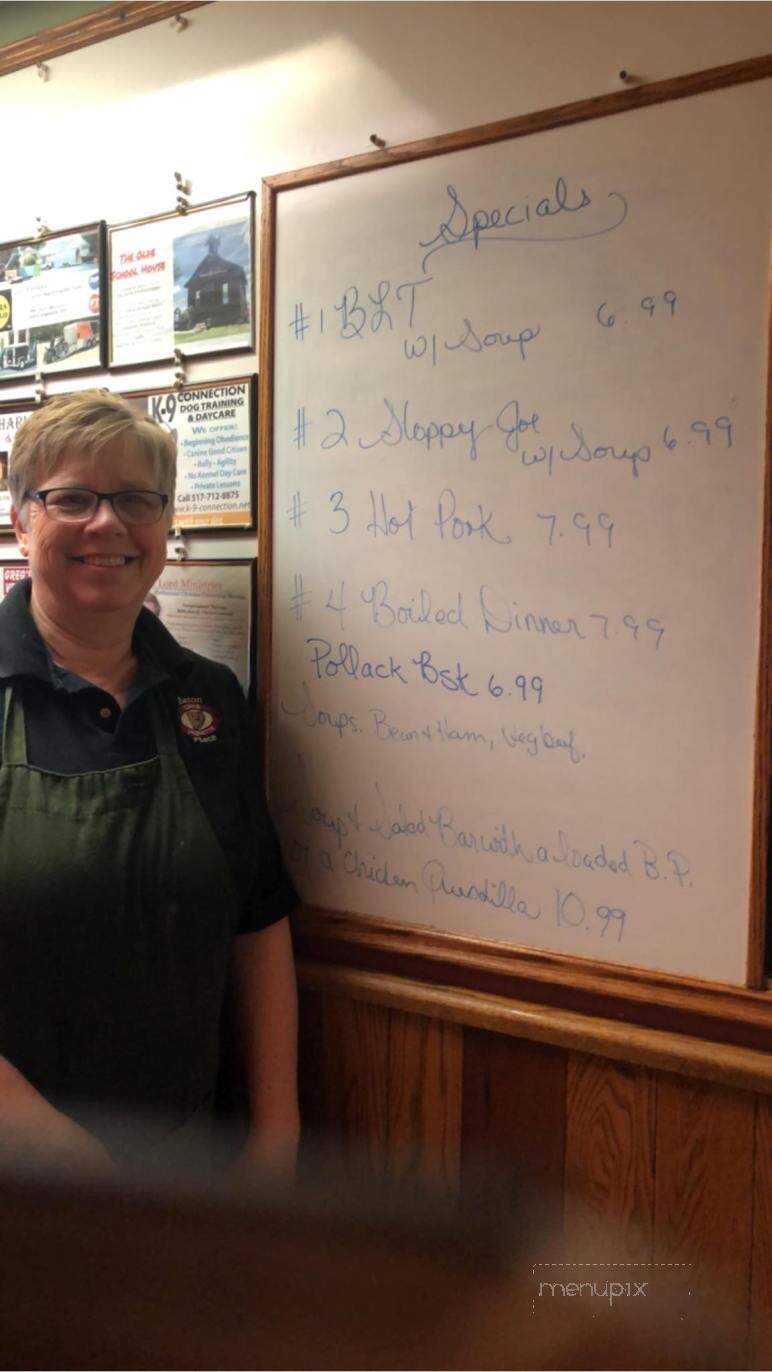 Specials
#1 BLT
w/ Soup 6.99
#2 Sloppy Joe
w/ Soup 6.99
#3 Hot Pork 7.99
#4 Boiled Dinner 7.99
Pollack Bsk 6.99
Soups. Bean & Ham, Veg beef.
Soup & Salad Bar with a loaded B.P.
or a Chicken Quesdilla 10.99
THE OLDE
SCHOOL HOUSE
K-9 CONNECTION
DOG TRAINING
& DAYCARE
WE OFFER:
• Beginning Obedience
• Canine Good Citizen
• Rally • Agility
• No Kennel Day Care
• Private Lessons
Call 517-712-8875
www.k-9-connection.net
Lord Ministries
GREG'S
Eaton
Place
menupix